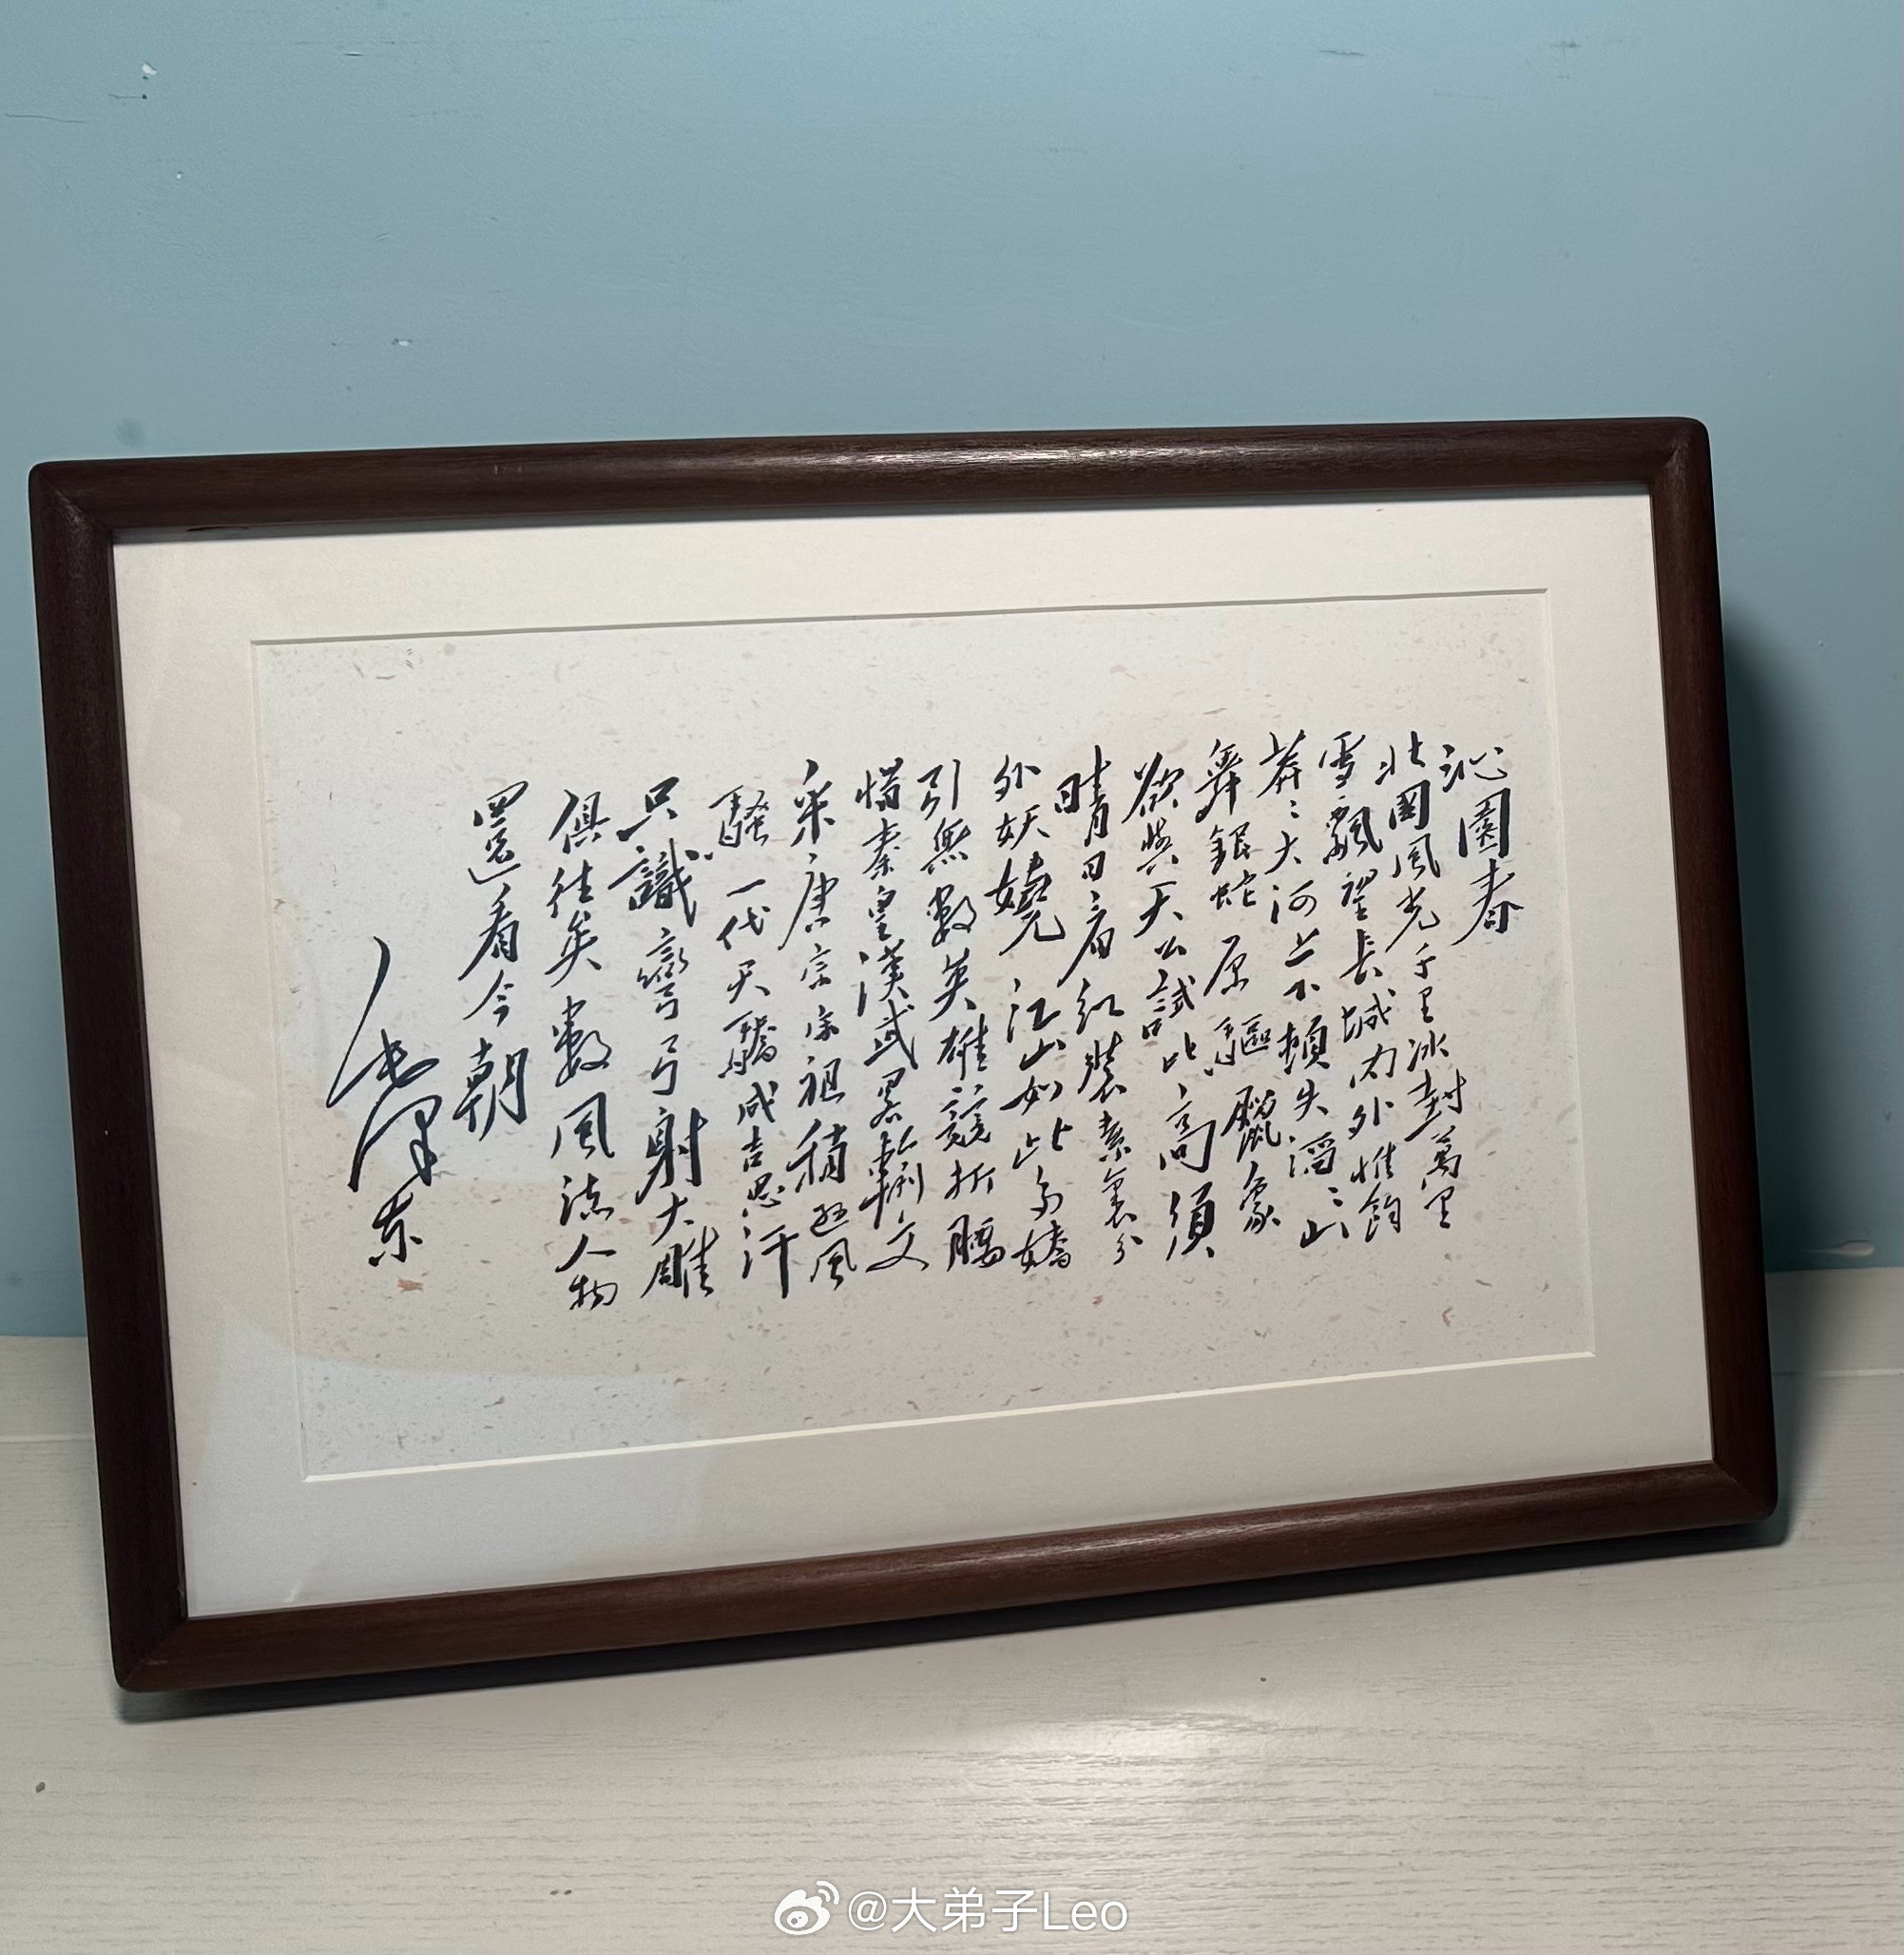 沁園春
北國風光千里冰封萬里
雪飄望長城內外惟餘
莽〻大河上下頓失滔〻山
舞銀蛇原驅臘象
欲與天公試比高須
晴日看紅裝素裹分
外妖嬈江山如此多嬌
引無數英雄競折腰
惜秦皇漢武畧輸文
采唐宗宋祖稍遜風
騷一代天驕成吉思汗
只識彎弓射大雕
俱往矣數風流人物
還看今朝
毛澤东
@大弟子Leo